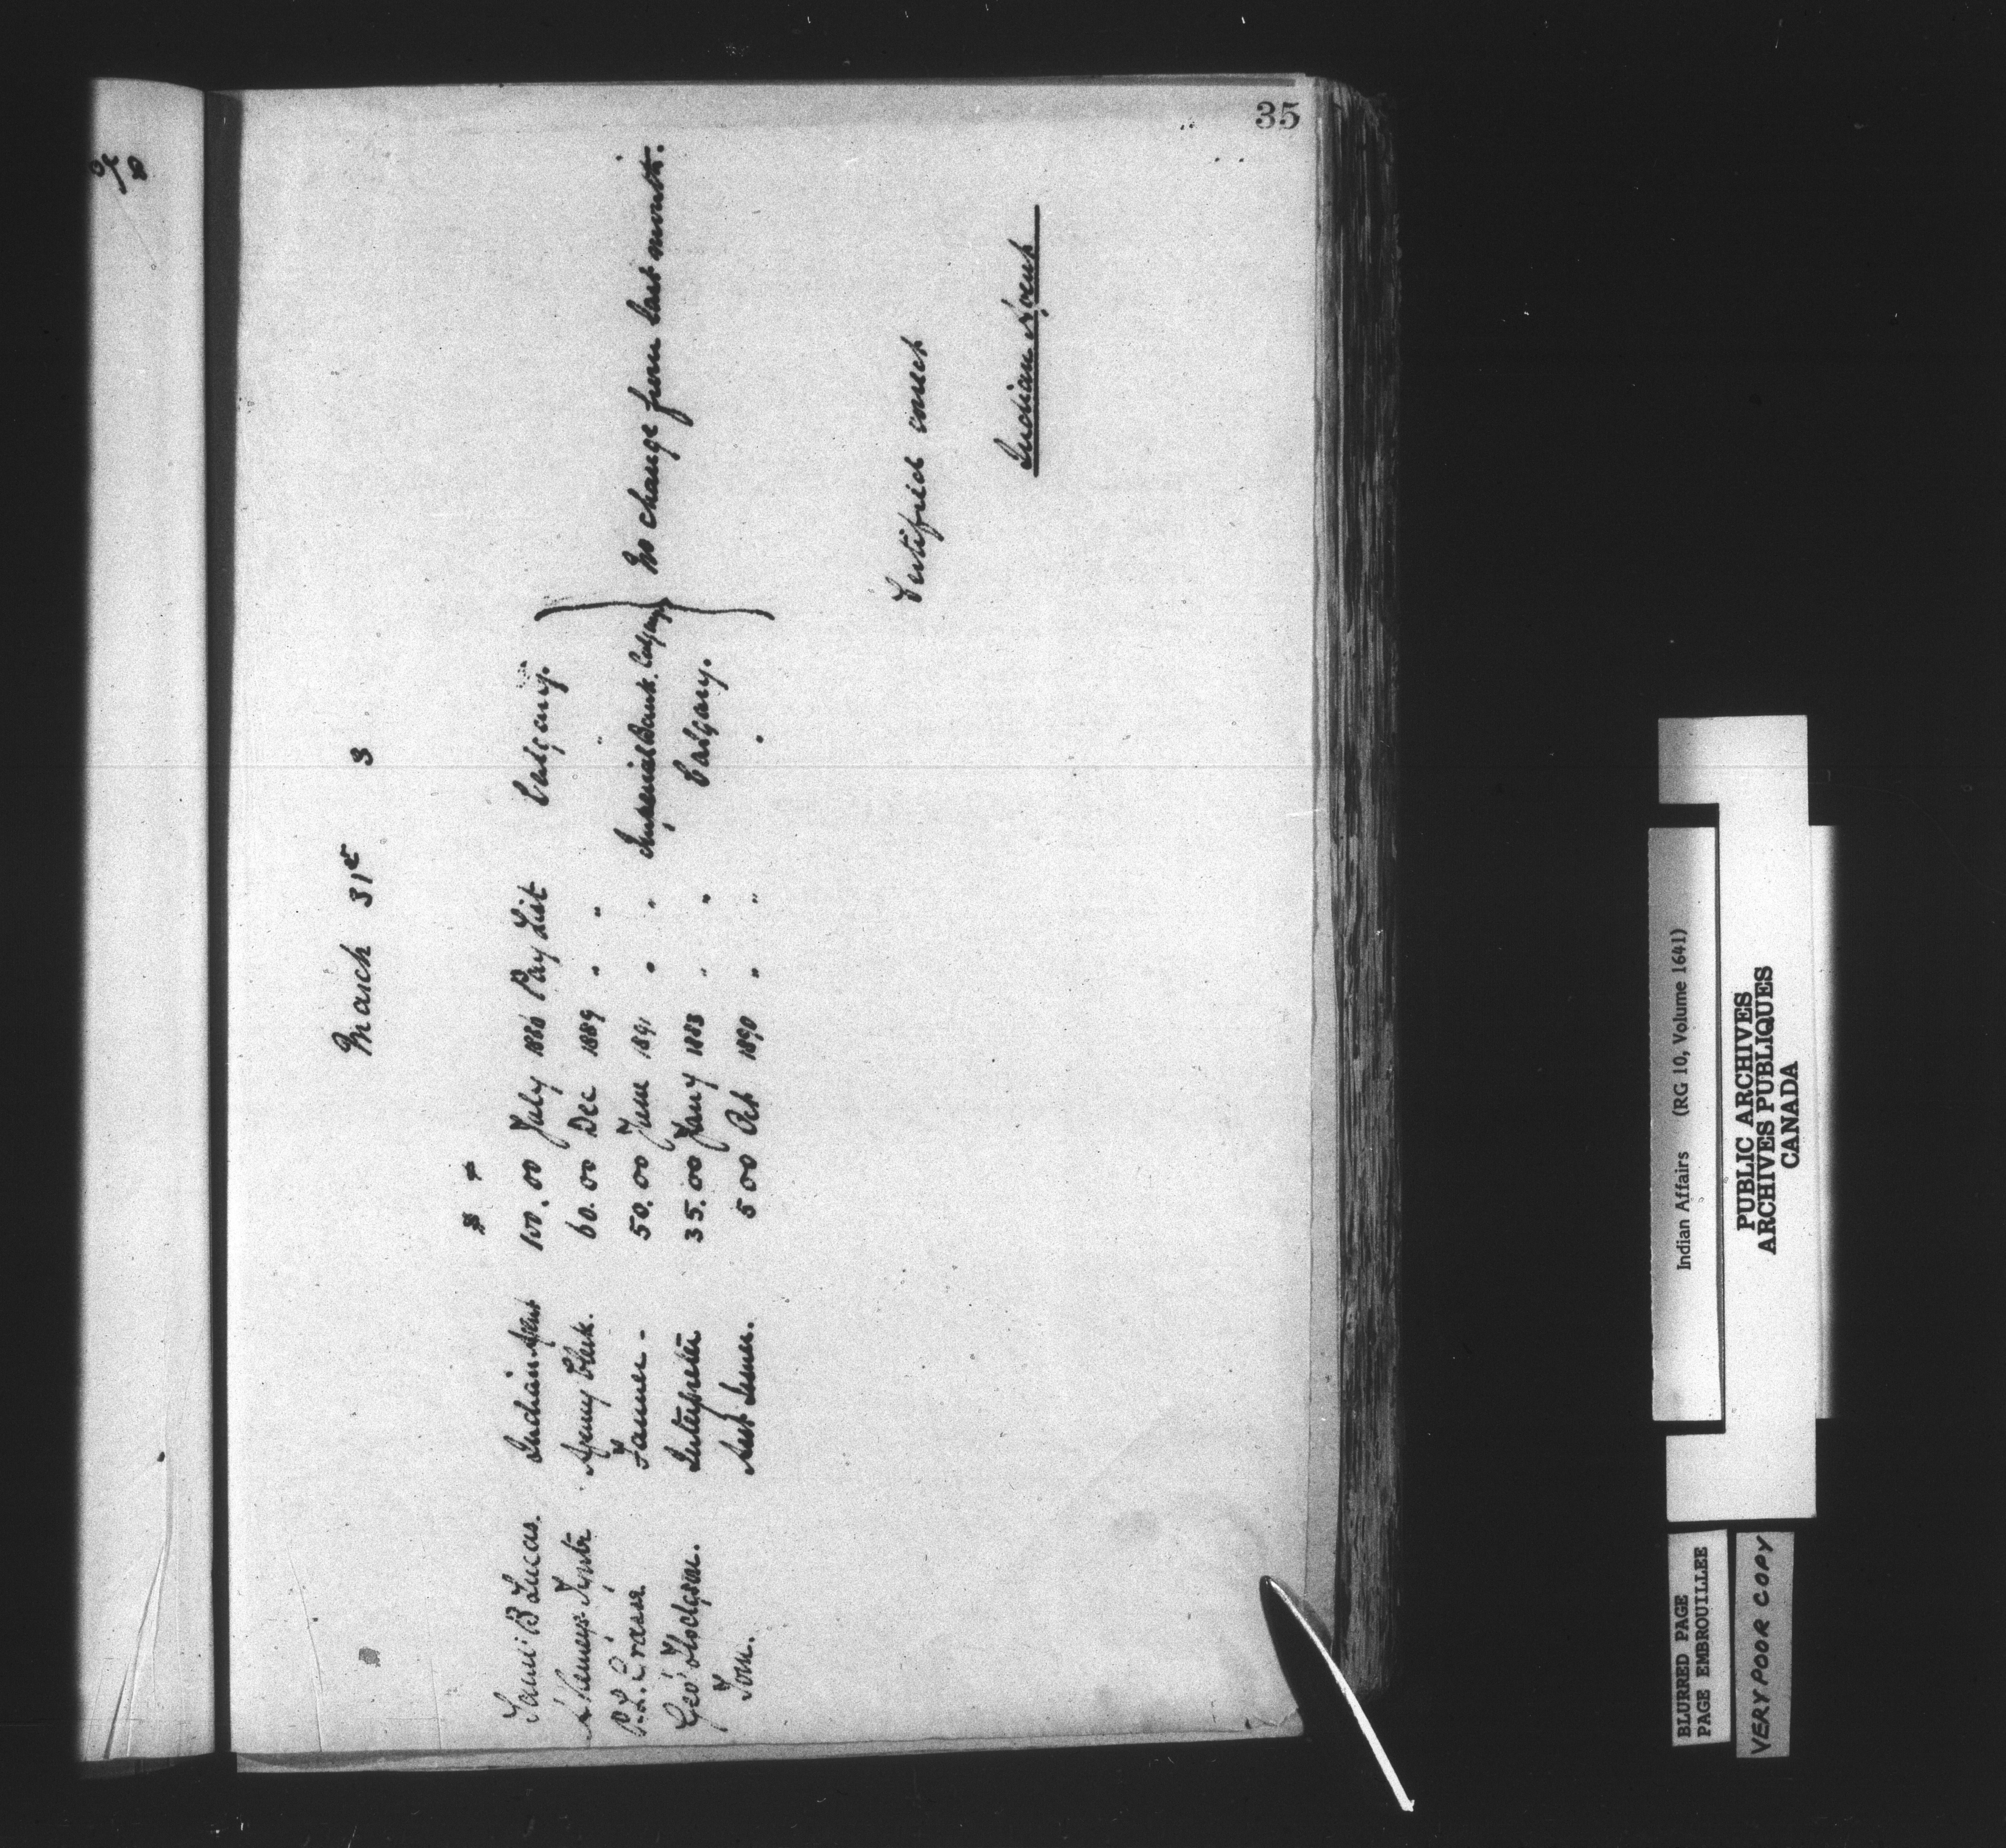 35
March 31st 3
$ ¢
Saml B Lucas. Indian Agent 100.00 July 1886 Pay List Calgary.
A. Kemeys-Tynte Agency Clerk. 60.00 Dec 1889 " " "
P. L. Grasse Farmer - 50.00 June 1891 " " Imperial Bank. Calgary
Geo Hodgson. Interpreter 35.00 Jany 1883 " " Calgary.
Tom. 5 00 Oct 1890 " " "
No change from last month.
Certified correct
Indian Agent
Indian Affairs (RG 10, Volume 1641)
PUBLIC ARCHIVES
ARCHIVES PUBLIQUES
CANADA
BLURRED PAGE
PAGE EMBROUILLEE
VERY POOR COPY